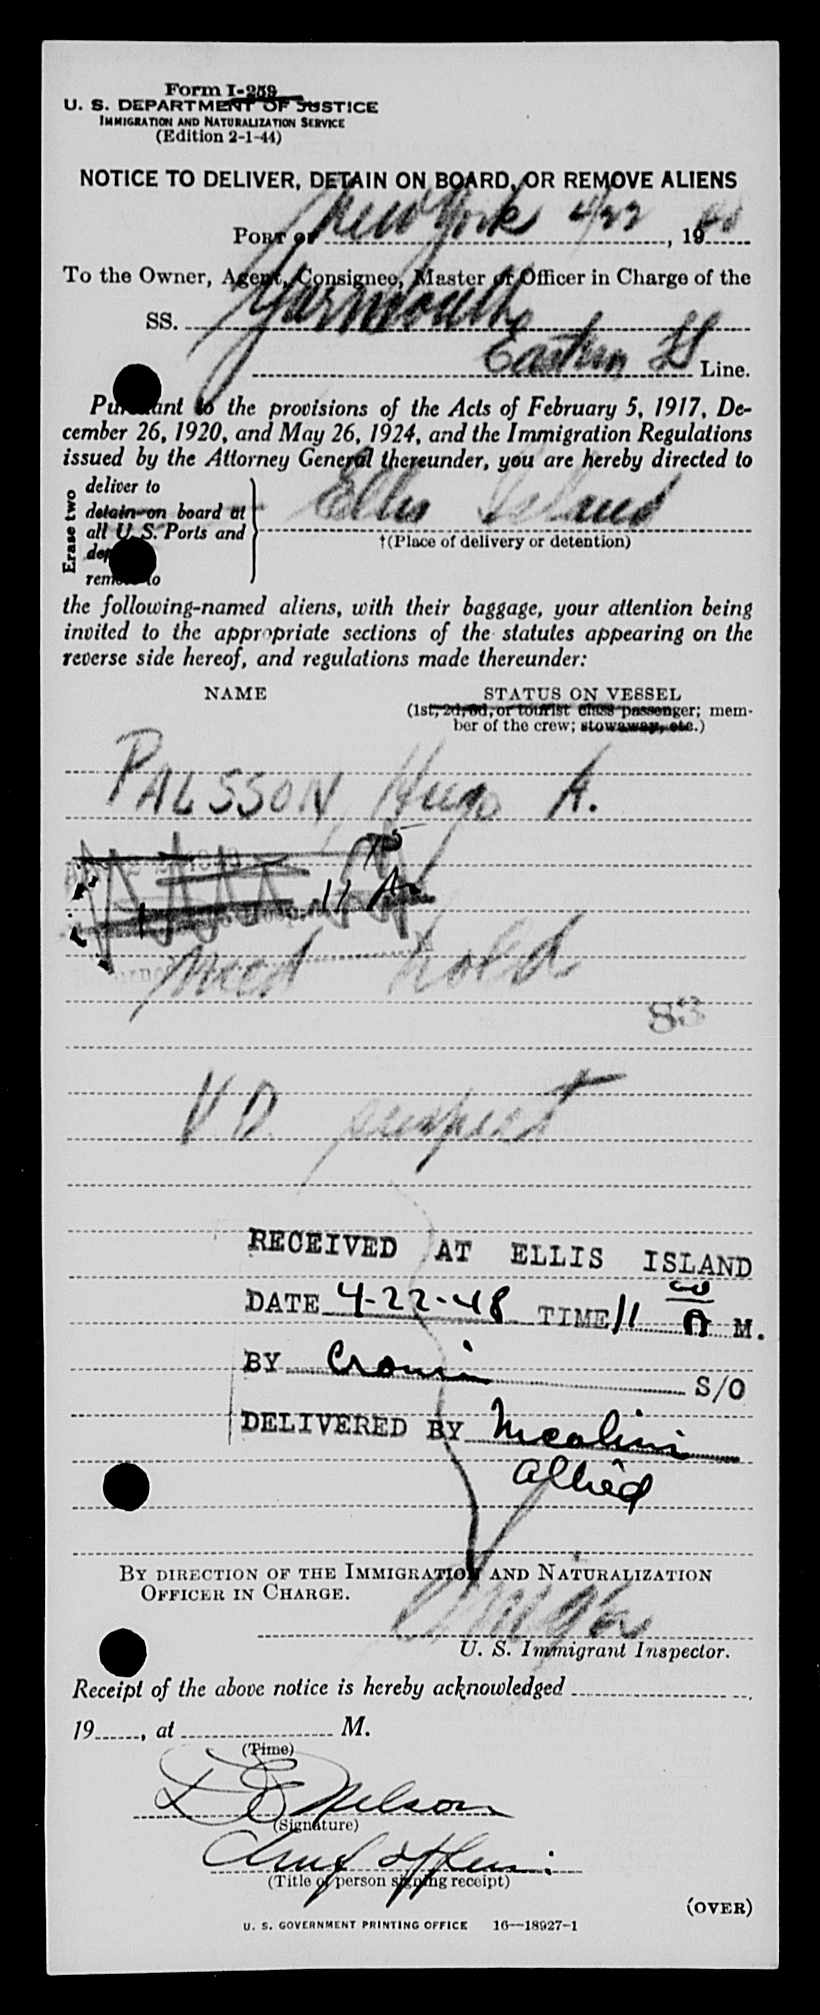 Form I-259
U. S. DEPARTMENT OF JUSTICE
IMMIGRATION AND NATURALIZATION SERVICE
(Edition 2-1-44)
NOTICE TO DELIVER, DETAIN ON BOARD, OR REMOVE ALIENS
PORT OF New York 4/22, 19
To the Owner, Agent, Consignee, Master or Officer in Charge of the
SS. Yarmouth
Eastern SS Line.
Pursuant to the provisions of the Acts of February 5, 1917, De-
cember 26, 1920, and May 26, 1924, and the Immigration Regulations
issued by the Attorney General thereunder, you are hereby directed to
Erase two
deliver to
detain on board at
all U. S. Ports and
remove to
Ellis Island
†(Place of delivery or detention)
the following-named aliens, with their baggage, your attention being
invited to the appropriate sections of the statutes appearing on the
reverse side hereof, and regulations made thereunder:
NAME STATUS ON VESSEL
(1st, 2d, 3d, or tourist class passenger; mem-
ber of the crew; stowaway, etc.)
PALSSON, Hugo A.
11 A
med hold
83
V D. suspect
RECEIVED AT ELLIS ISLAND
DATE 4-22-48 TIME 11 00 A M.
BY Cronin S/O
DELIVERED BY
Allied
BY DIRECTION OF THE IMMIGRATION AND NATURALIZATION
OFFICER IN CHARGE.
U. S. Immigrant Inspector.
Receipt of the above notice is hereby acknowledged
19, at M.
(Time)
Nelson
(Signature)
Chief Officer
(Title of person signing receipt)
(OVER)
U. S. GOVERNMENT PRINTING OFFICE 16—18927-1